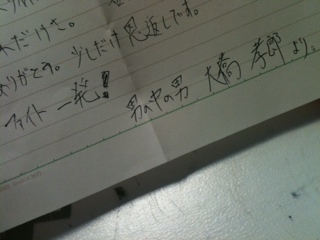 れだけさ。
ありがとう。少しだけ見返してね。
ファイト一発!
男の中の男 大橋 孝郎 より。